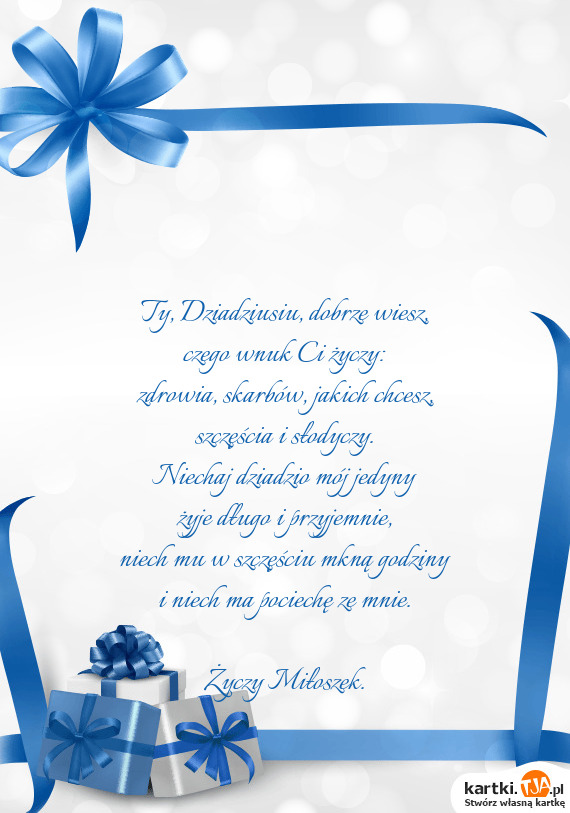 Ty, Dziadziusiu, dobrze wiesz,
czego wnuk Ci życzy:
zdrowia, skarbów, jakich chcesz,
szczęścia i słodyczy.
Niechaj dziadzio mój jedyny
żyje długo i przyjemnie,
niech mu w szczęściu mkną godziny
i niech ma pociechę ze mnie.
Życzy Miłoszek.
kartki.TJA.pl
Stwórz własną kartkę